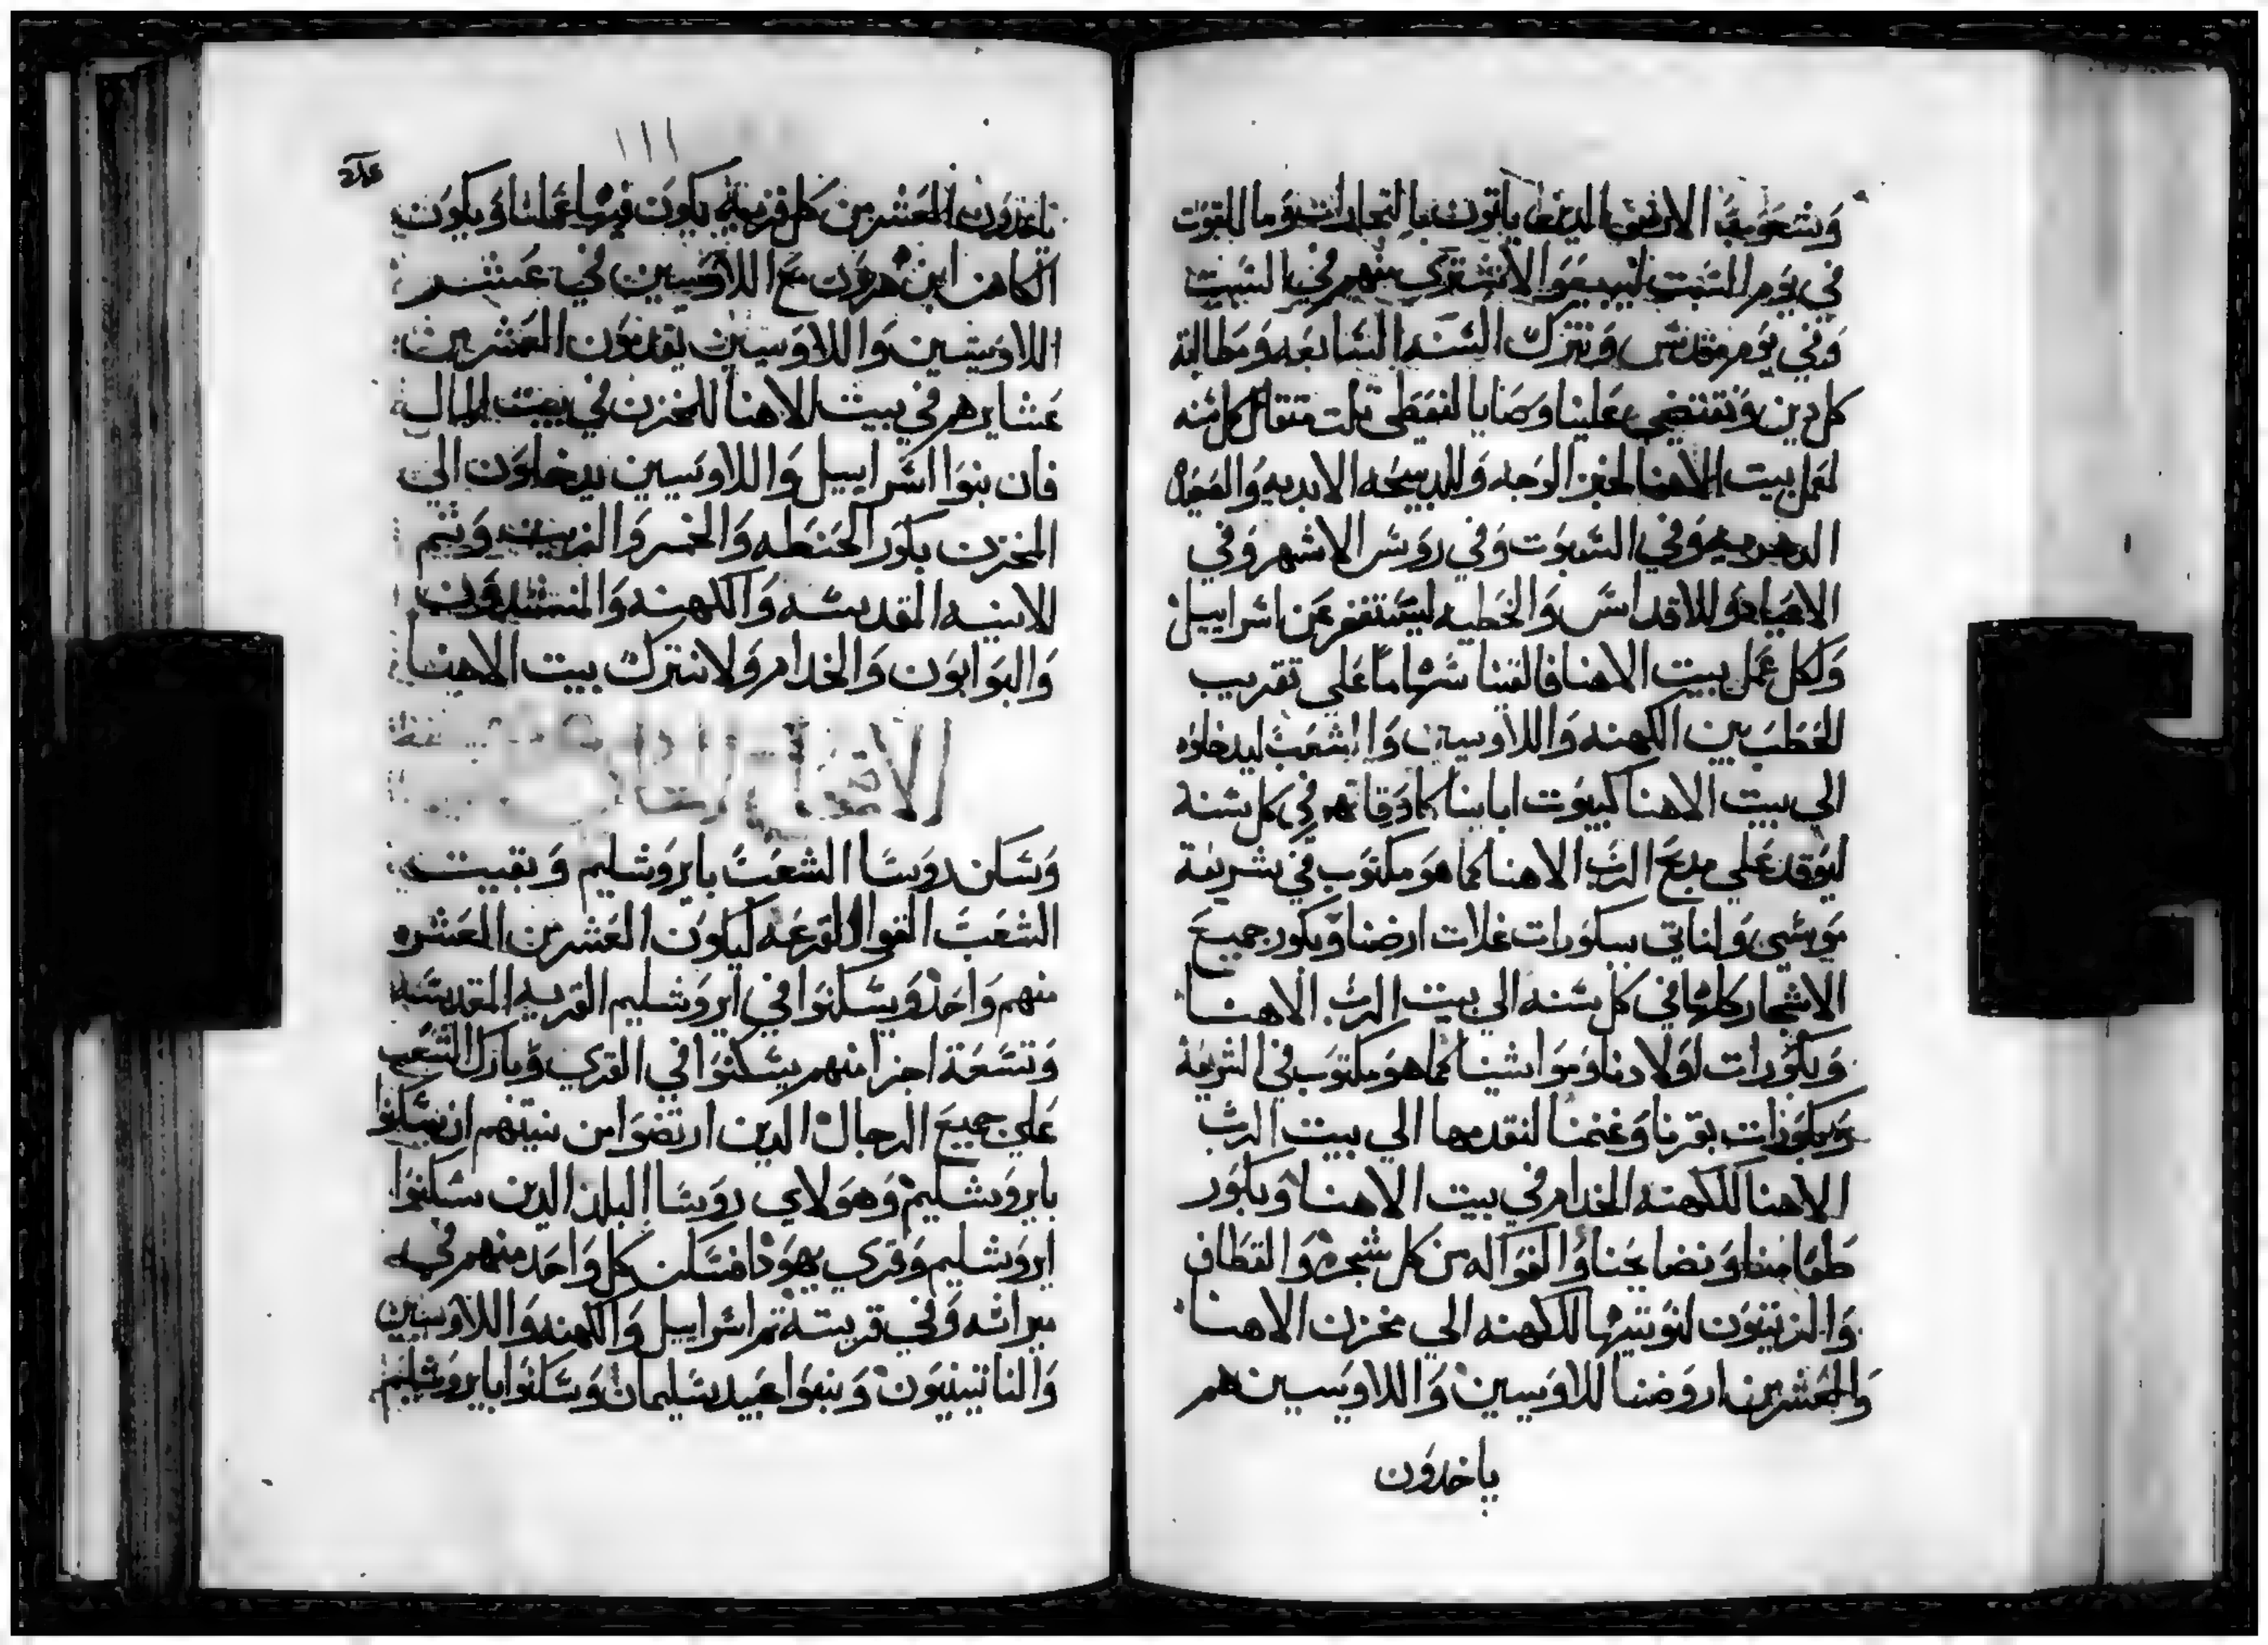 وشعوب الارض الذين ياتون بالتجارات وما للقوت
في يوم السبت ليبيعوا لا نشتري منهم في السبت
وفي يوم مقدس ونترك السنه السابعه ومطالبة
كل دين ونقتضي علينا وصايا لنعطى تلت متقال كل سنه
لعمل بيت الاهنا لخبز الوجه وللدبيحه الابديه والصعيده
وفي السبوت وفي روس الاشهر وفي
الاعياد وللاقداس والخطيه ليستغفر عن اسراييل
ولكل عمل بيت الاهنا فالقينا سهاما على تقريب
الحطب بين الكهنه واللاويين والشعب ليدخلوه
الي بيت الاهنا كبيوت اباينا كاوقاته في كل سنة
ليوقد علي مدبح الرب الاهنا كما هو مكتوب في شريعة
موسي ولناتي ببكورات غلات ارضنا وبكور جميع
الاشجار كلها في كل سنه الي بيت الرب الاهنا
وبكورات اولادنا ومواشينا كما هو مكتوب في الشريعة
وبكورات بقرنا وغنمنا لنقدمها الي بيت الرب
الاهنا للكهنه الخدام في بيت الاهنا وبكور
طعامنا ونضايحنا والفواكه من كل شجره والقطاف
والزيتون لنوتيها للكهنه الي مخزن الاهنا
والعشر من اروضنا للاويين واللاويين هم
ياخدون
١١١
ياخدون العشر من كل قرية يكون فيها عملنا ويكون
الكاهن ابن هرون مع اللاويين في عشر
اللاويين واللاويين يقدمون العشر من
عشايرهم في بيت الاهنا للمخزن في بيت المال
فان بنوا اسراييل واللاويين يدخلون الي
المخزن بكور الحنطه والخمر والزيت وثم
الانيه المقدسه والكهنه والمنشدون
والبوابون والخدام ولا نترك بيت الاهنا
وسكن روسا الشعب بايروشليم وبقيت
الشعب القوا القرعه ليكون العشر من العشره
منهم واحد ويسكنوا في ايروشليم القريه المقدسه
وتسعة اجزا منهم يسكنوا في القري وبارك الشعب
علي جميع الرجال الدين ارتضوا من نيتهم ان يسكنوا
بايروشليم وهولاي روسا البلد الدين سكنوا
ايروشليم وقري يهودا فسكن كل واحد منهم في
ميراثه وفي قريته تم اسراييل والكهنه واللاويين
والناتينيون وبنوا عبيد سليمان وسكنوا بايروشليم